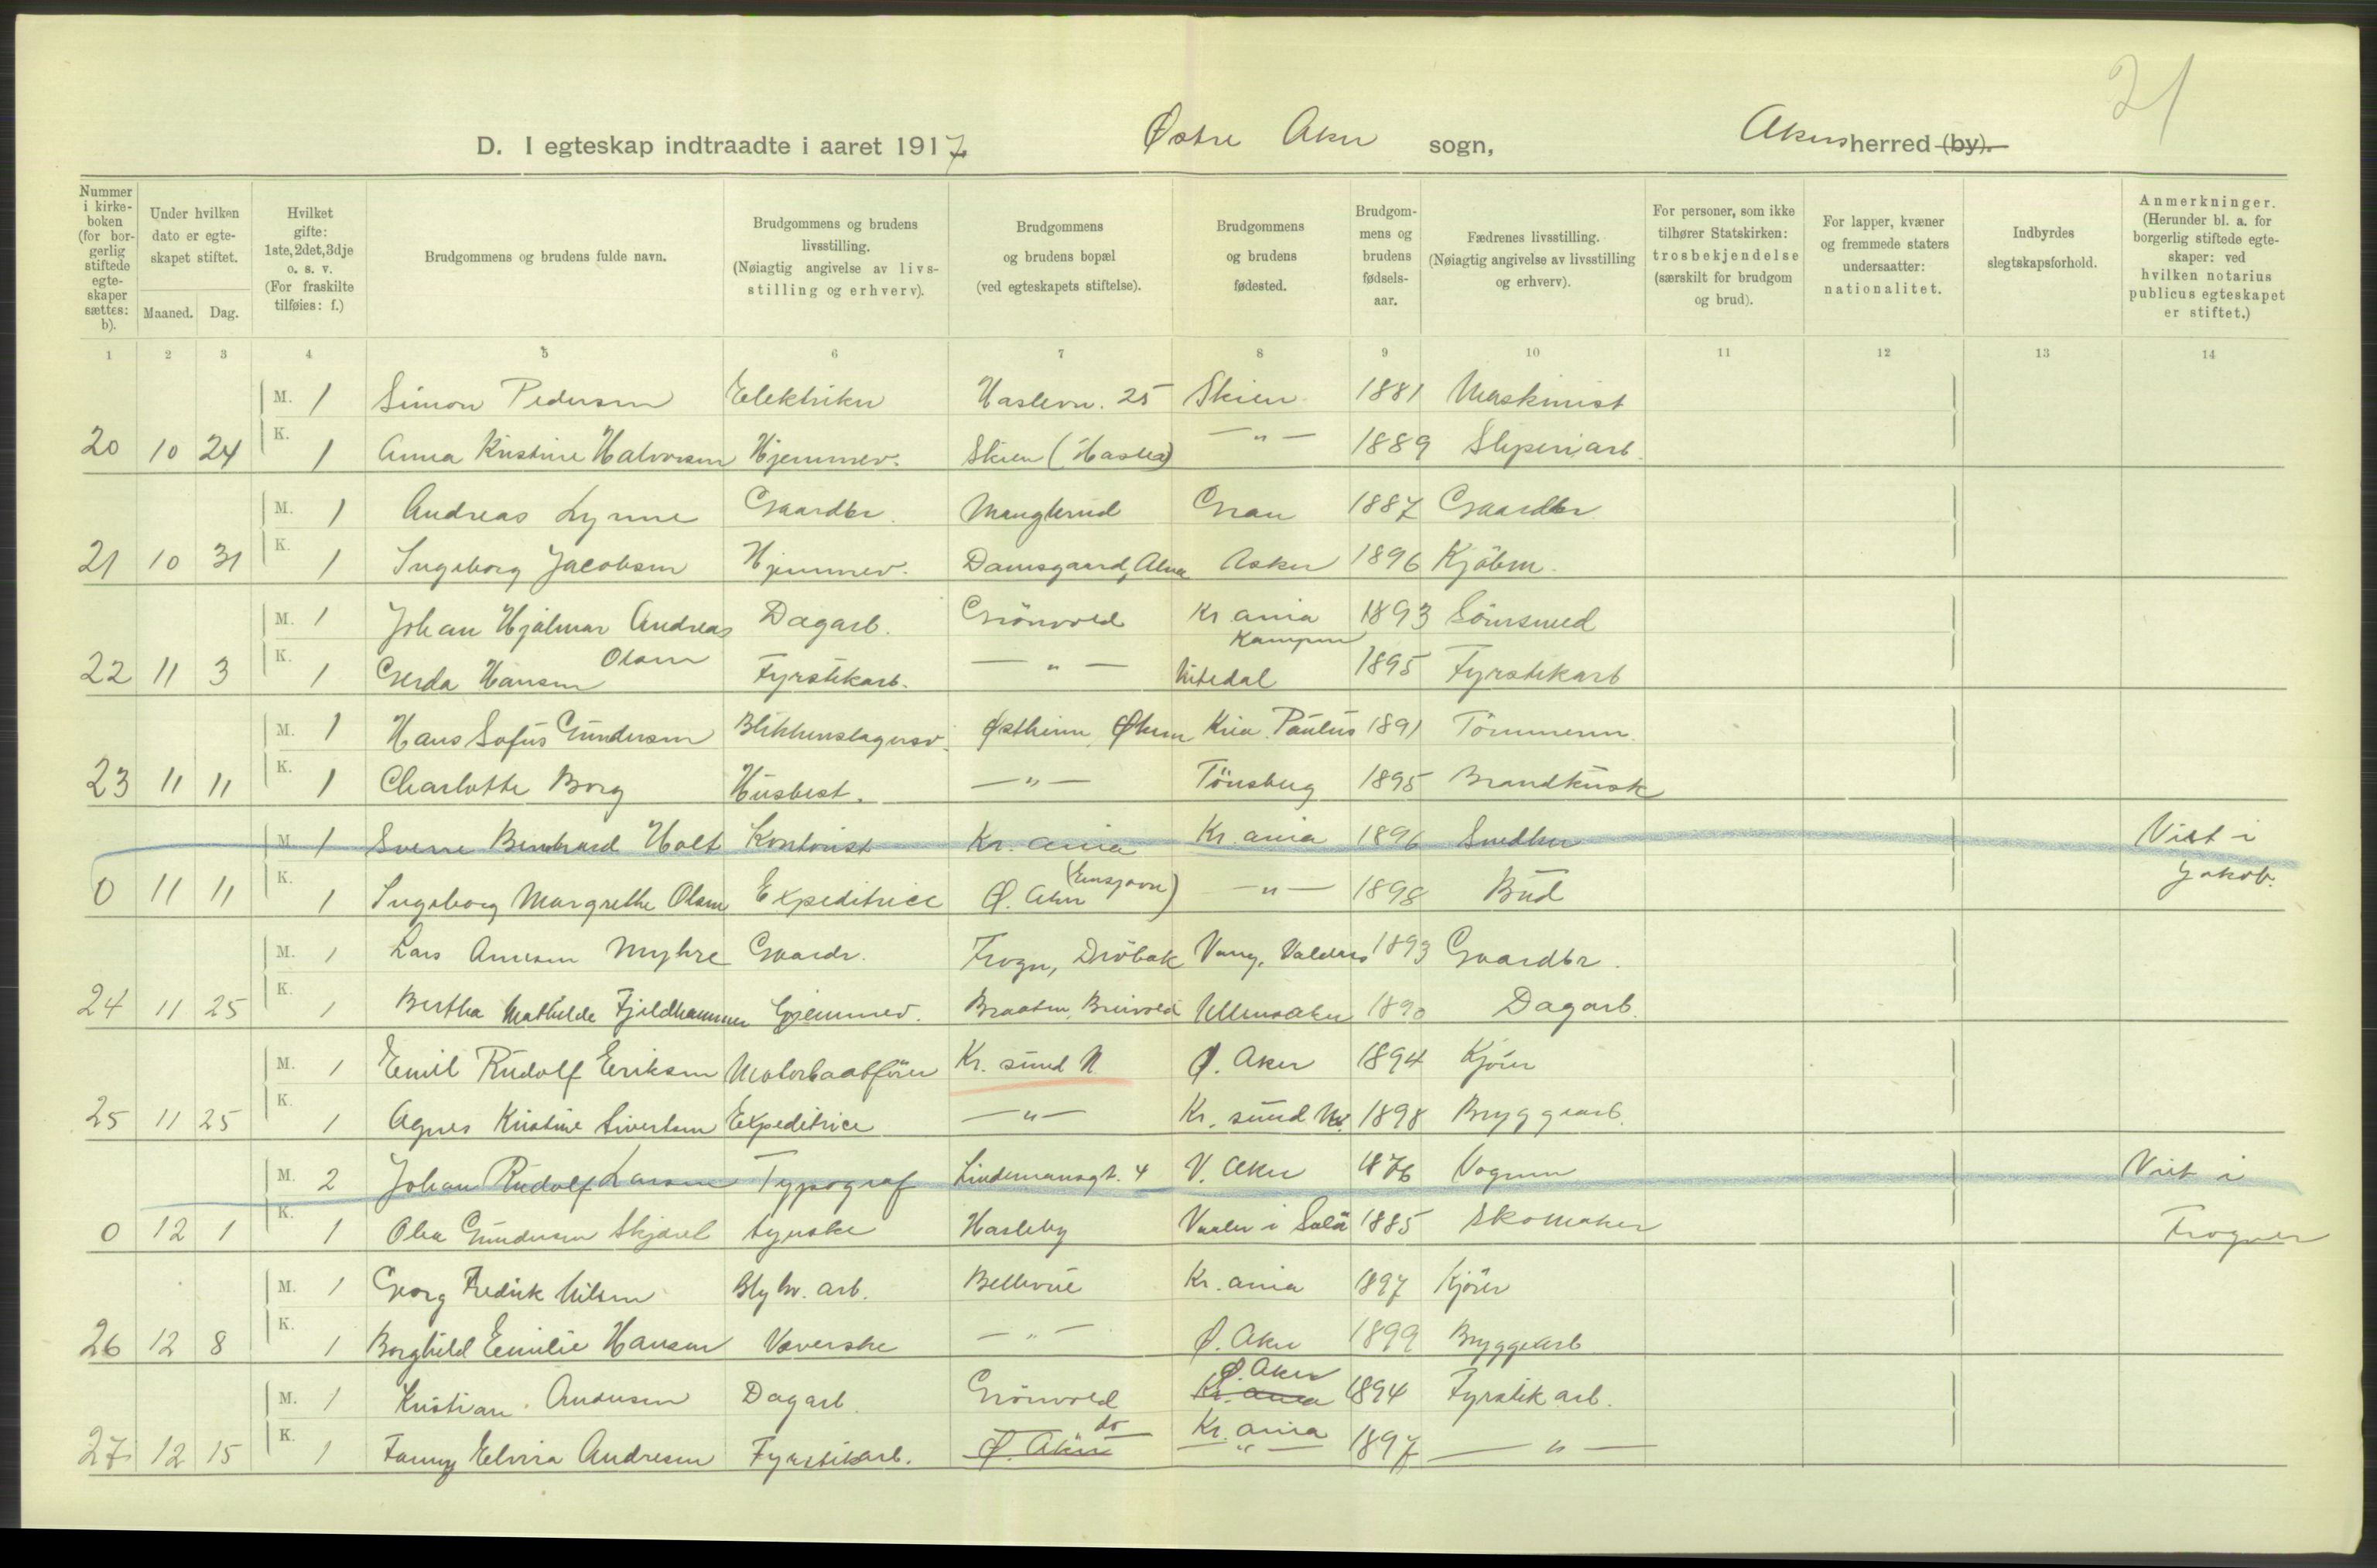 21
D. I egteskap indtraadte i aaret 1917, Østre Aker sogn, Akers herred (by).
Nummer i kirkeboken (for borgerlig stiftede egteskaper sættes: b).
Under hvilken dato er egteskapet stiftet.
Maaned. Dag.
Hvilket gifte: 1ste, 2det, 3dje o. s. v. (For fraskilte tilføies: f.)
Brudgommens og brudens fulde navn.
Brudgommens og brudens livsstilling. (Nøiagtig angivelse av livsstilling og erhverv).
Brudgommens og brudens bopæl (ved egteskapets stiftelse).
Brudgommens og brudens fødested.
Brudgommens og brudens fødselsaar.
Fædrenes livsstilling. (Nøiagtig angivelse av livsstilling og erhverv).
For personer, som ikke tilhører Statskirken: trosbekjendelse (særskilt for brudgom og brud).
For lapper, kvæner og fremmede staters undersaatter: nationalitet.
Indbyrdes slegtskapsforhold.
Anmerkninger. (Herunder bl. a. for borgerlig stiftede egteskaper: ved hvilken notarius publicus egteskapet er stiftet.)
1 2 3 4 5 6 7 8 9 10 11 12 13 14
M. 1 Simon Pedersen Elektriker Haslevn. 25 Skien 1881 Maskinist
20 10 24 K. 1 Anna Kristine Halvorsen Hjemmev. Skien (Hasle) — " — 1889 Sliperiarb.
M. 1 Andreas Lynne Gaardbr. Manglerud Gran 1887 Gaardbr.
21 10 31 K. 1 Ingeborg Jacobsen Hjemmev. Damsgaard, Alna Asker 1896 Kjøbm.
M. 1 Johan Hjalmar Andreas Dagarb. Grönvold Kr.ania 1893 Sömsmed
Olsen Kampen
22 11 3 K. 1 Gerda Hansen Fyrstikarb. — " — Nitedal 1895 Fyrstikarb
M. 1 Hans Sofus Gundersen Blikkenslagersv. Østheim, Økern Kria. Paulus 1891 Tömmerm.
23 11 11 K. 1 Charlotte Borg Husbest. — " — Tönsberg 1895 Brandkusk
M. 1 Sverre Bernhard Holt Kontorist Kr.ania Kr.ania 1896 Snedker Viet i
0 11 11 K. 1 Ingeborg Margrethe Olsen Expeditrice Ø. Aker (Ensjøvn) — " — 1898 Bud Jakob.
M. 1 Lars Arnesen Myhre Gaardr. Frogn, Dröbak Vang, Valders 1893 Gaardbr.
24 11 25 K. 1 Bertha Mathilde Fjeldhammer Hjemmev. Braaten, Breivold Ullensaker 1890 Dagarb.
M. 1 Emil Rudolf Eriksen Motorbaatförer Kr. sund N. Ø. Aker 1894 Kjörer
25 11 25 K. 1 Agnes Kristine Sivertsen Expeditrice — " — Kr. sund N. 1898 Bryggearb.
M. 2 Johan Rudolf Larsen Typograf Lindemansgt. 4 V. Aker 1876 Vognm Viet i
0 12 1 K. 1 Olea Gundersen Skjæret Syerske Hasleby Vaaler i Solör 1885 Skomaker Frogner
M. 1 Georg Fredrik Nilsen Bly hv. arb. Bellevue Kr.ania 1897 Kjörer
26 12 8 K. 1 Borghild Emilie Hansen Væverske — " — Ø. Aker 1899 Bryggearb
Ø. Aker
M. 1 Kristian Andersen Dagarb. Grönvold Kr.ania 1894 Fyrstikarb.
do Kr.ania
27 12 15 K. 1 Fanny Elvira Andresen Fyrstikarb. Ø. Aker — " — 1897 — " —